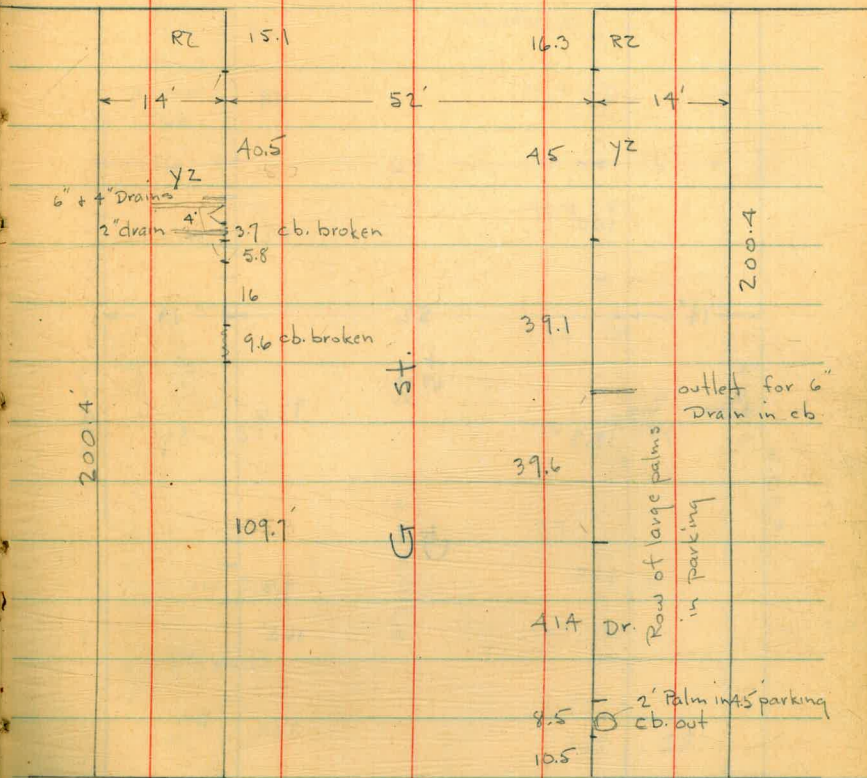 RZ 15.1 16.3 RZ
14' 52' 14'
40.5 45 YZ
YZ
6" + 4" Drains
4'
2" drain 3.7 cb. broken
5.8
200.4
16
39.1
9.6 cb. broken
St.
outlet for 6"
Drain in cb.
200.4'
39.6
109.7'
G
Row of large palms
in parking
41.4 Dr.
2' Palm in 4.5' parking
8.5 cb. out
10.5